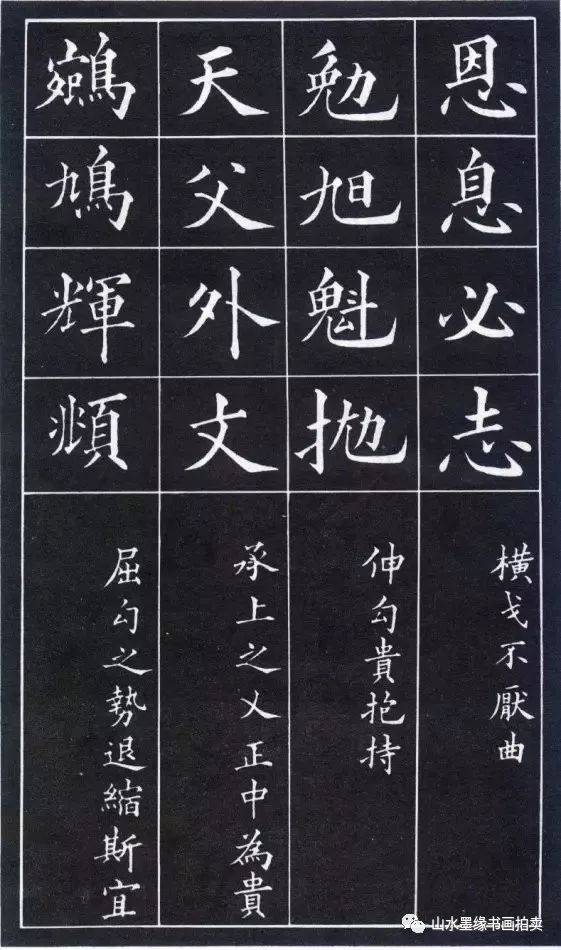 恩息必志
横戈不厭曲
勉旭魁抛
伸勾貴抱持
天父外丈
承上之乂正中為貴
鳩輝頫
屈勾之勢退縮斯宜
山水墨缘书画拍卖